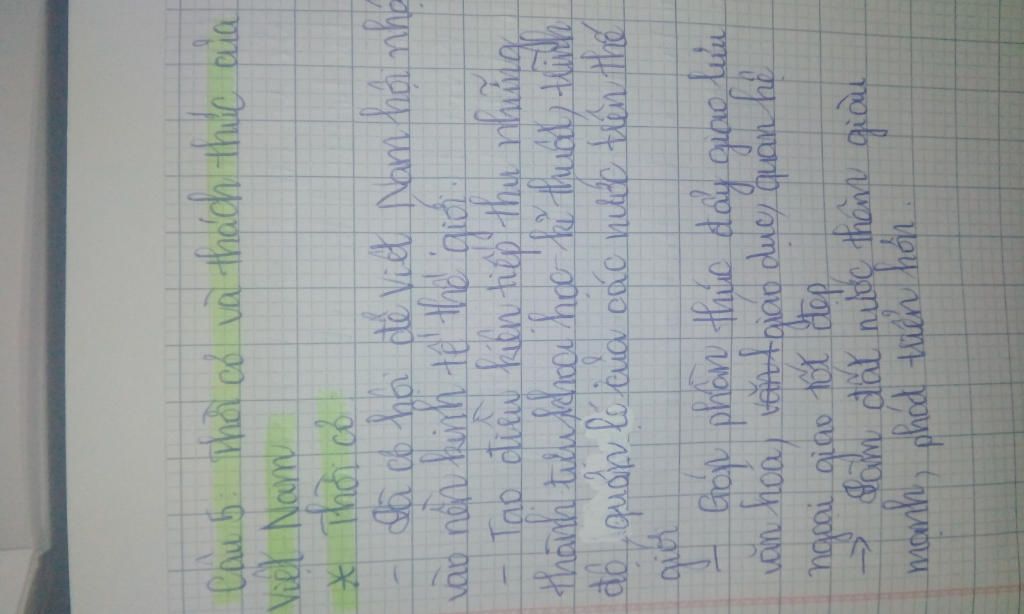 Câu 5: Thời cơ và thách thức của
Việt Nam
* Thời cơ
- Là cơ hội để Việt Nam hội nhậ
vào nền kinh tế thế giới.
- Tạo điều kiện tiếp thu những
thành tựu khoa học - kĩ thuật, trình
độ quản lí của các nước trên thế
giới
- Góp phần thúc đẩy giao lưu
văn hóa, giáo dục, quan hệ
ngoại giao tốt đẹp
→ Làm đất nước thêm giàu
mạnh, phát triển hơn.